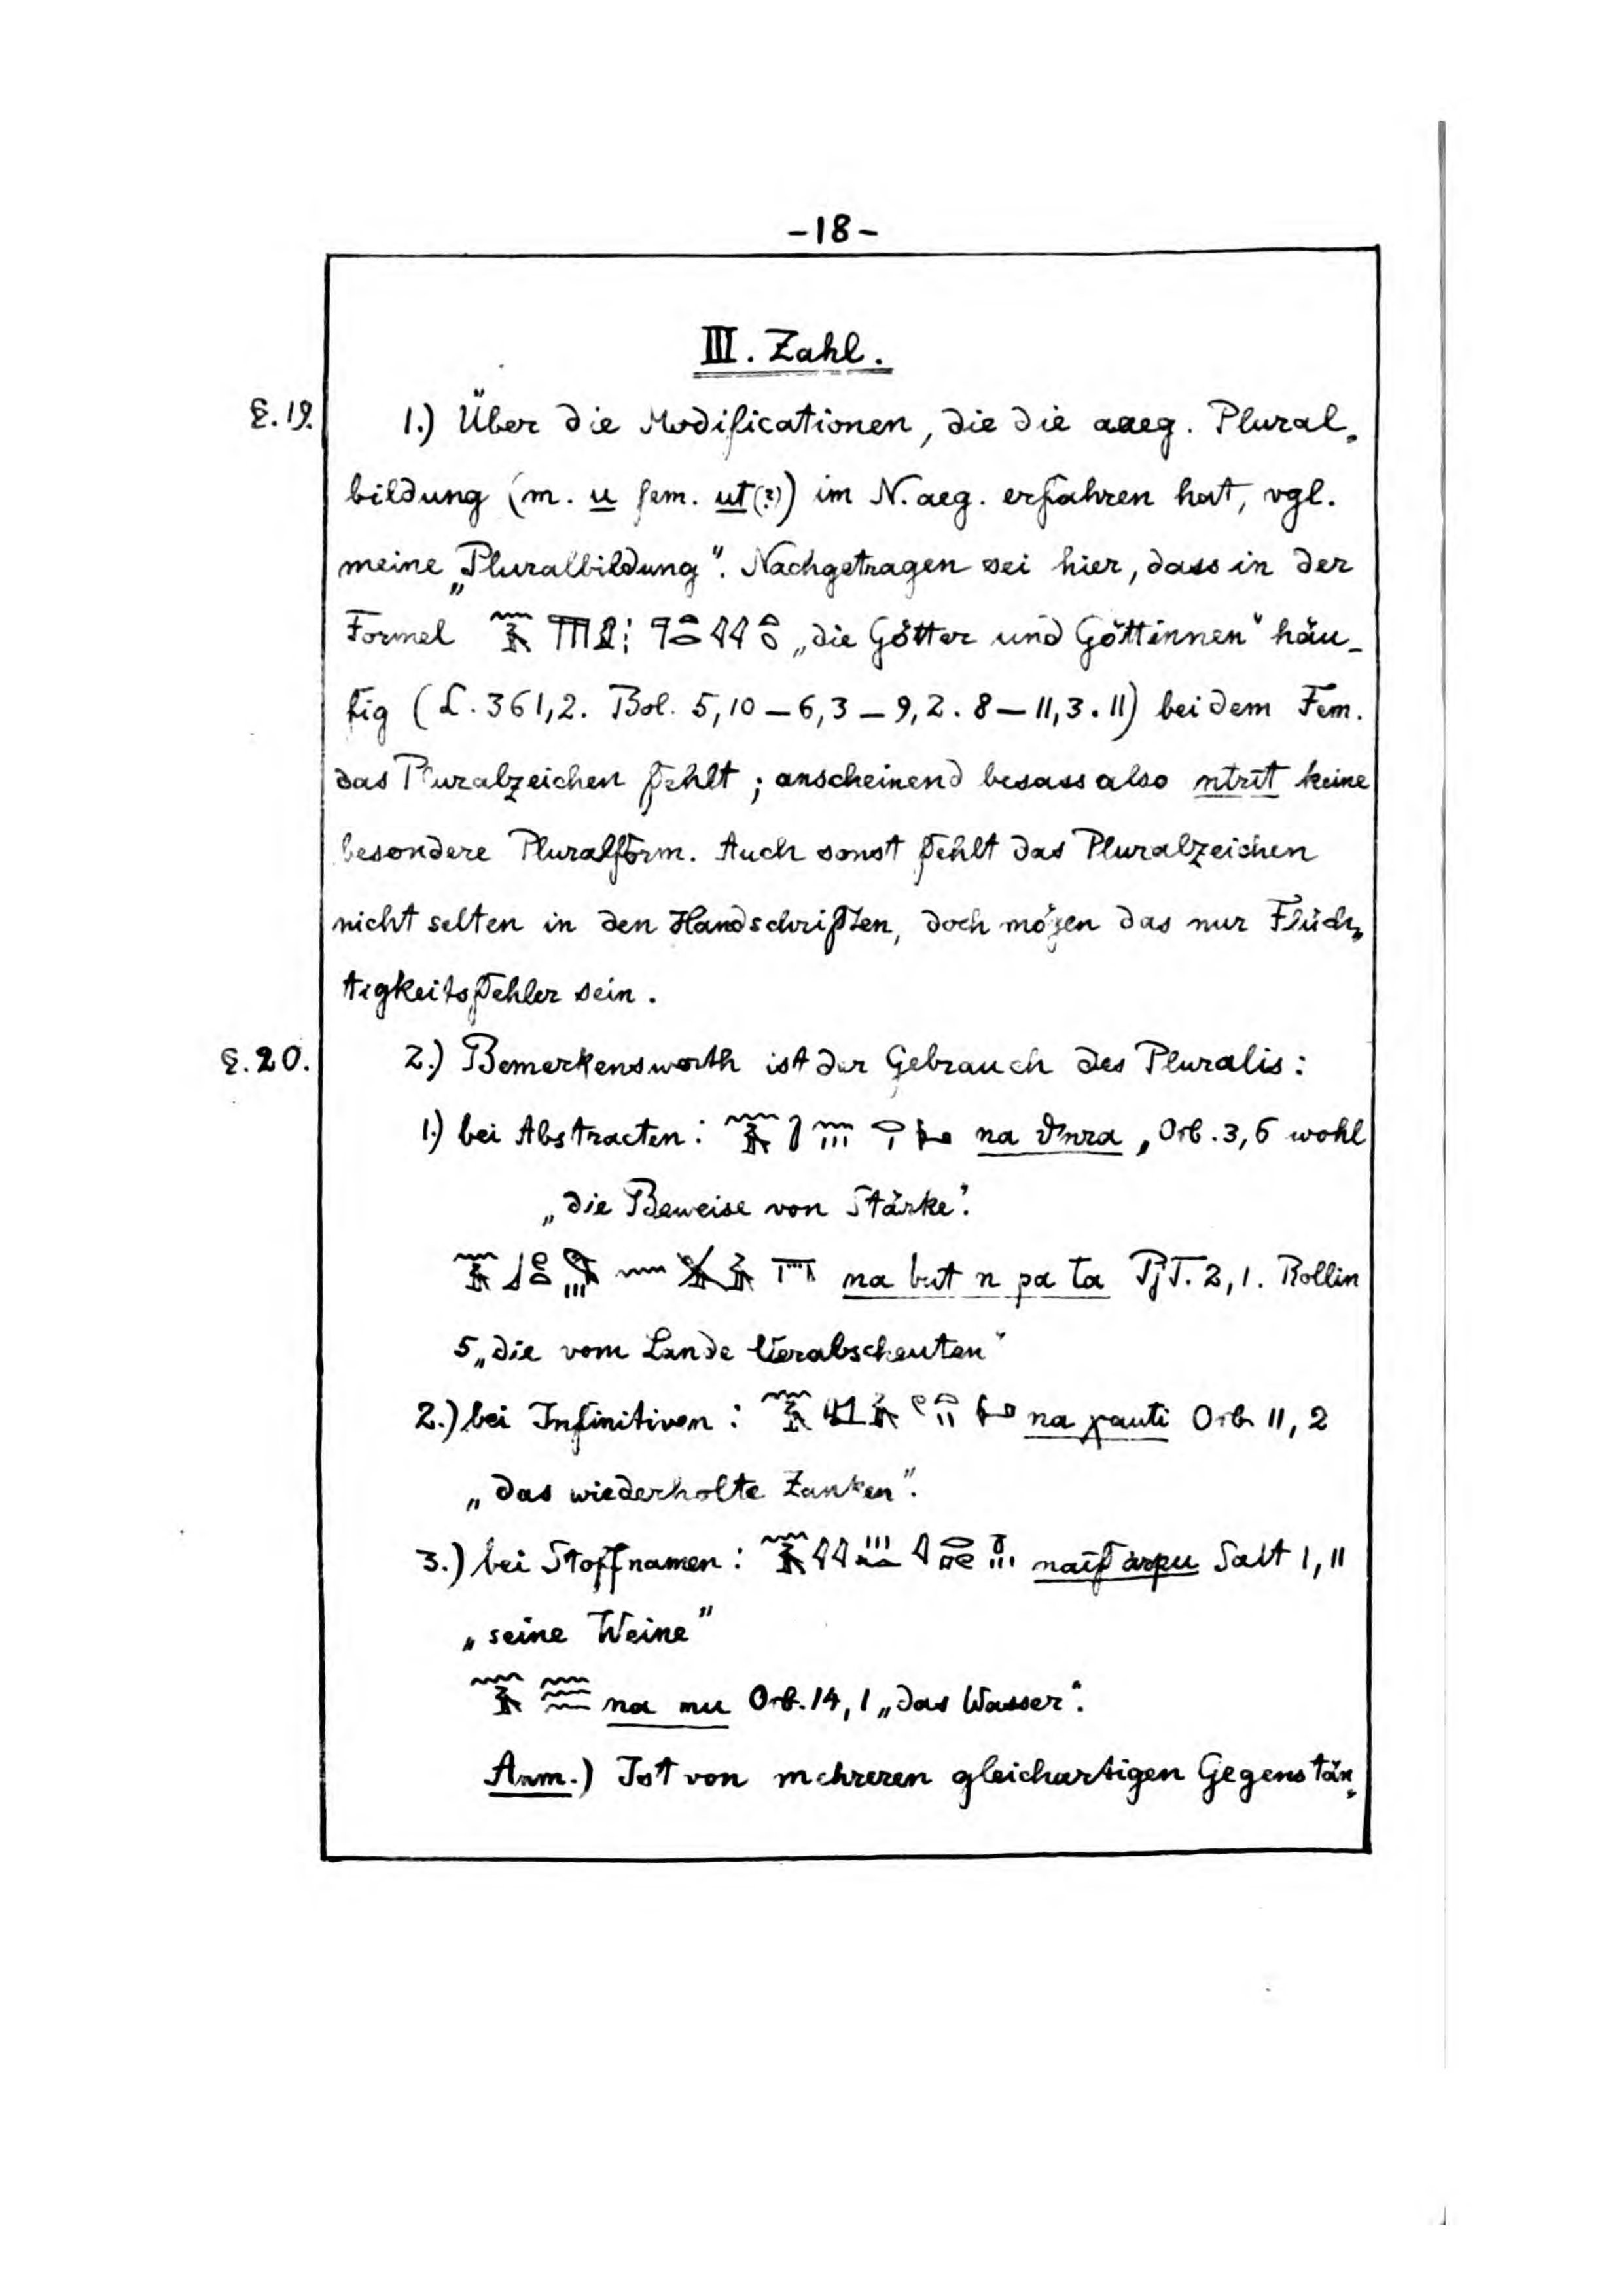 -18-
III. Zahl.
§.19. 1.) Über die Modificationen, die die aaeg. Plural-
bildung (m. u fem. ut(?)) im N.aeg. erfahren hat, vgl.
meine „Pluralbildung". Nachgetragen sei hier, dass in der
Formel „die Götter und Göttinnen" häu-
fig (L. 361,2. Bol. 5,10 – 6,3 – 9,2. 8 – 11,3. 11) bei dem Fem.
das Pluralzeichen fehlt; anscheinend besass also ntrït keine
besondere Pluralform. Auch sonst fehlt das Pluralzeichen
nicht selten in den Handschriften, doch mögen das nur Flüch-
tigkeitsfehler sein.
§.20. 2.) Bemerkenswerth ist der Gebrauch des Pluralis:
1.) bei Abstracten: na Orb. 3,6 wohl
„die Beweise von Stärke".
na but n pa ta PjT. 2,1. Rollin
5 „die vom Lande Verabscheuten"
2.) bei Infinitiven: na χauti Orb. 11,2
„das wiederholte Zanken".
3.) bei Stoffnamen: naïf àrpu Salt 1,11
„seine Weine"
na mu Orb. 14,1 „das Wasser".
Anm.) Ist von mehreren gleichartigen Gegenstän-